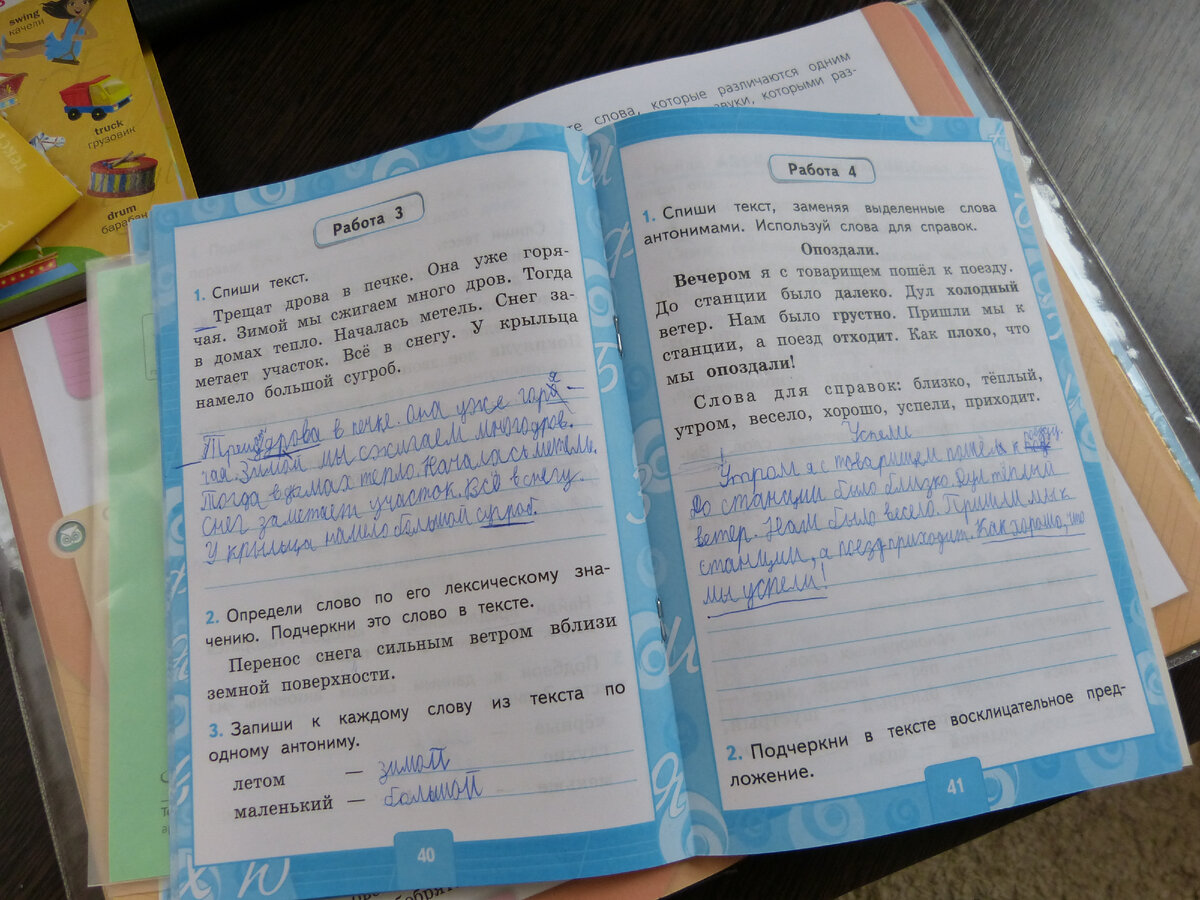 swing
качели
truck
грузовик
drum
барабан
слова, которые различаются одним
звуки, которыми раз-
Работа 3
1. Спиши текст.
Трещат дрова в печке. Она уже горя-
чая. Зимой мы сжигаем много дров. Тогда
в домах тепло. Началась метель. Снег за-
метает участок. Всё в снегу. У крыльца
намело большой сугроб.
дрова в печке. Она уже горя-
чая. Зимой мы сжигаем много дров.
Тогда в домах тепло. Началась метель.
Снег заметает участок. Всё в снегу.
У крыльца намело большой сугроб.
2. Определи слово по его лексическому зна-
чению. Подчеркни это слово в тексте.
Перенос снега сильным ветром вблизи
земной поверхности.
3. Запиши к каждому слову из текста по
одному антониму.
летом — зимой
маленький — большой
40
Работа 4
1. Спиши текст, заменяя выделенные слова
антонимами. Используй слова для справок.
Опоздали.
Вечером я с товарищем пошёл к поезду.
До станции было далеко. Дул холодный
ветер. Нам было грустно. Пришли мы к
станции, а поезд отходит. Как плохо, что
мы опоздали!
Слова для справок: близко, тёплый,
утром, весело, хорошо, успели, приходит.
Успели
Утром я с товарищем пошёл к поезду.
До станции было близко. Дул тёплый
ветер. Нам было весело. Пришли мы к
станции, а поезд приходит. Как хорошо, что
мы успели!
2. Подчеркни в тексте восклицательное пред-
ложение.
41